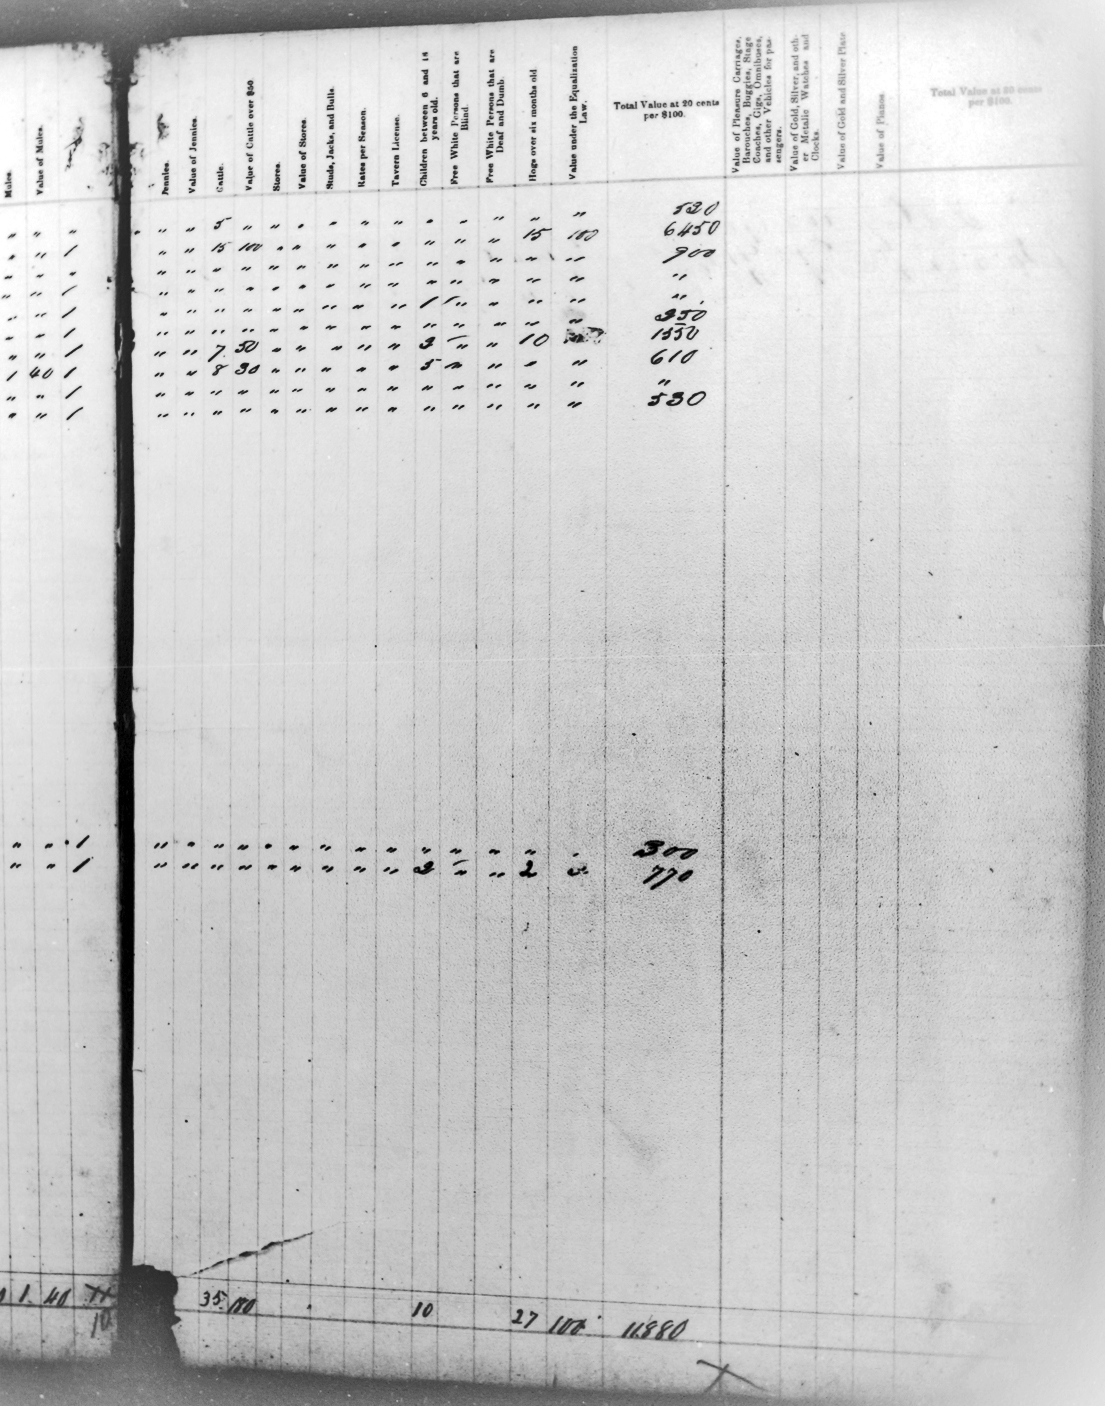 Mules.
Value of Mules.
Jennies.
Value of Jennies.
Cattle.
Value of Cattle over $50
Stores.
Value of Stores.
Studs, Jacks, and Bulls.
Rates per Season.
Tavern License.
Children between 6 and 18
years old.
Free White Persons that are
Blind.
Free White Persons that are
Deaf and Dumb.
Hogs over six months old
Value under the Equalization
Law.
Total Value at 20 cents
per $100.
Value of Pleasure Carriages,
Barouches, Buggies, Stage
Coaches, Gigs, Omnibuses,
and other Vehicles for pas-
sengers.
Value of Gold, Silver, and oth-
er Metalic Watches and
Clocks.
Value of Gold and Silver Plate
Value of Pianos.
Total Value at 30 cents
per $100.
" " " " " " 5 " " " " " " " " " " " " 520
" " 1 " " 15 100 " " " " " " " " 15 100 6450
" " " " " " " " " " " " " " " " " 900
" " 1 " " " " " " " " " " " " " " "
" " 1 " " " " " " " " " 1 " " " " "
" " 1 " " " " " " " " " " " " " " 350
" " 1 " " 7 50 " " " " " 3 " " 10 1550
1 40 1 " " 8 30 " " " " " 5 " " " " 610
" " 1 " " " " " " " " " " " " " " "
" " 1 " " " " " " " " " " " " " " 530
" " 1 " " " " " " " " " " " " " " 300
" " 1 " " " " " " " " " 2 " " 2 770
1 40 35 180 10 27 100 11880
10